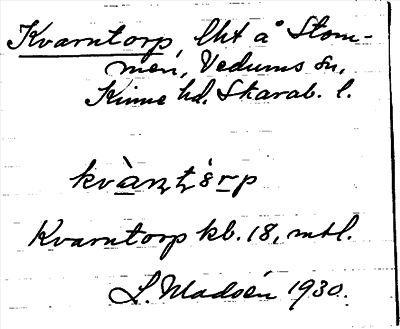 Kvarntorp, lht å Stom-
men, Vedums sn,
Kinne hd. Skarab. l.
kvànţţs̀rp
Kvarntorp kb. 18, mtl.
L. Madsén 1930.